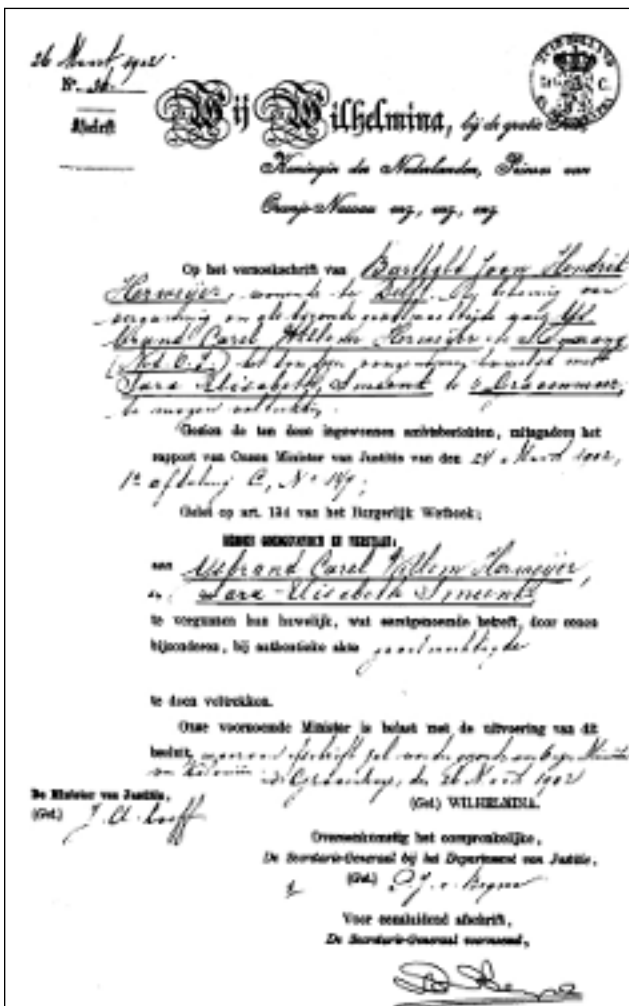 26 Maart 1902
N° 34
Afschrift
Wij Wilhelmina, bij de gratie Gods,
Koningin der Nederlanden, Prinses van
Oranje-Nassau enz., enz., enz.
Op het verzoekschrift van Barthold Joan Hendrik
Hermeijer, wonende te Delft,
vergunning om als bijzonder gemachtigde van IJs
brand Carel Willem Hermeijer te Semarang
(Ned. O. I.) het door hem aangegaan huwelijk met
Sara Elisabeth Simons te 's Gravenmoer,
te mogen voltrekken,
Gezien de ten deze ingewonnen ambtsberichten, mitsgaders het
rapport van Onzen Minister van Justitie van den 24 Maart 1902,
1e afdeling C, N° 149;
Gelet op art. 134 van het Burgerlijk Wetboek;
HEBBEN GOEDGEVONDEN EN VERSTAAN:
aan IJsbrand Carel Willem Hermeijer,
en Sara Elisabeth Simons
te vergunnen hun huwelijk, wat eerstgenoemde betreft, door eenen
bijzonderen, bij authentieke akte gevolmachtigde
te doen voltrekken.
Onze voornoemde Minister is belast met de uitvoering van dit
besluit, waarvan afschrift zal worden gezonden aan Onzen Minister
van Koloniën
's Gravenhage, den 26 Maart 1902
De Minister van Justitie,
(Get.) WILHELMINA.
(Get.) J. A. Loeff
Overeenkomstig het oorspronkelijke,
De Secretaris-Generaal bij het Departement van Justitie,
(Get.)
Voor eensluidend afschrift,
De Secretaris-Generaal voornoemd,